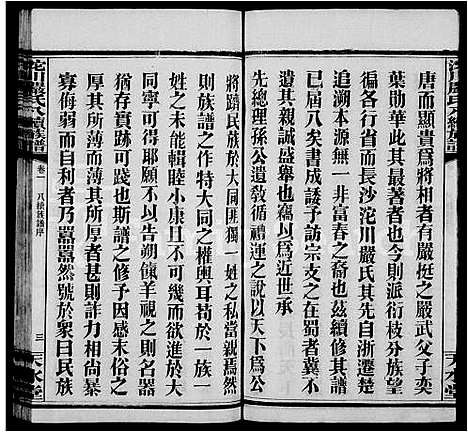 唐而顯貴爲將相者有嚴挺之嚴武父子奕
葉勛華此其最著者也今則派衍枝分族望
徧於各行省而長沙沱川嚴氏其先自浙遷楚
追溯本源無一非富春之裔也茲續修其譜
已屆八矣書成諉予訪宗支之在蜀者冀不
遺其親誠盛舉也竊以爲近世承
先總理孫公遺敎循禮運之說以天下爲公
將躋民族於大同匪獨一姓之私當親焉然
大同之權輿耳苟於一族一
姓之未能輯睦小康且不可幾而欲進於大
同寧可得耶願不以告朔餼羊視之則名器
猶存實踐可踐也斯譜之修予因感末俗之
於所薄而薄其所厚者甚且詐力相尚暴
寡侮弱而自利者乃囂囂然號於衆曰民族
沱川嚴氏八續族譜
卷一 八續族譜序
三
天水堂
沱川嚴氏八續族譜
天水堂